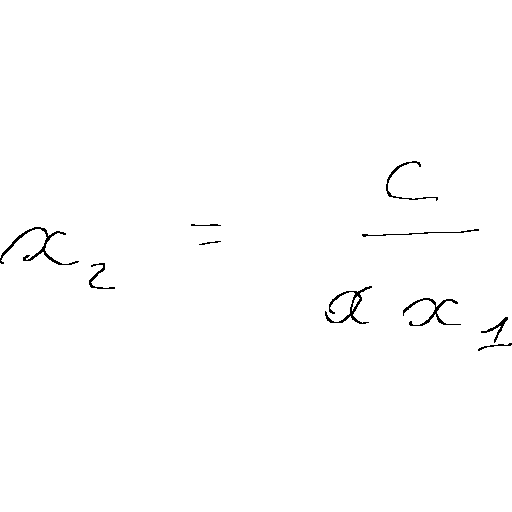 x_2 = \frac{c}{a x_1}